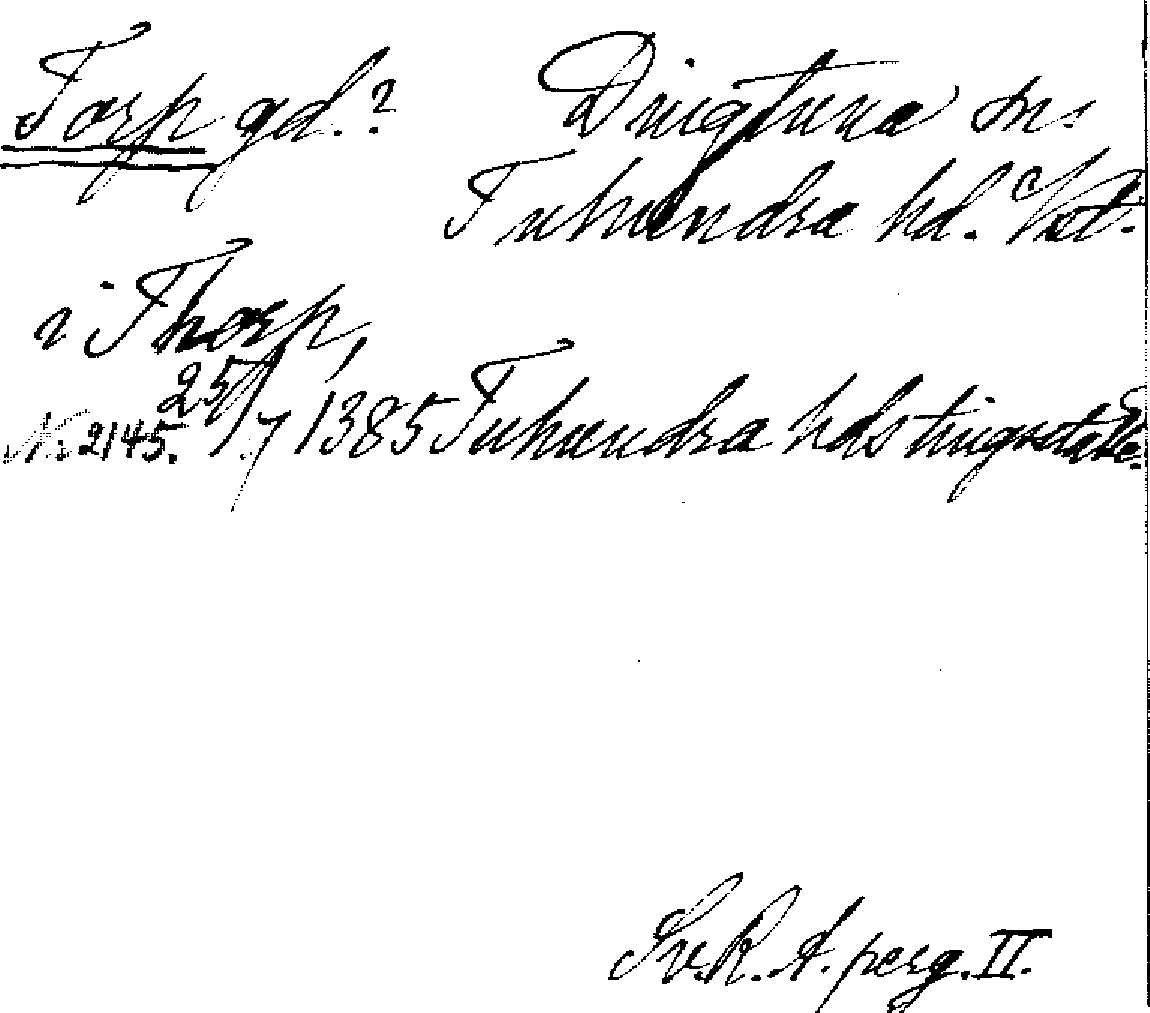 Torp gd.? Dingtuna sn.
Tuhundra hd. Vstl.
i Thorp,
Nr 2145. 25/7 1385 Tuhundra hds tingställe.
Sv. R. A. perg. II.